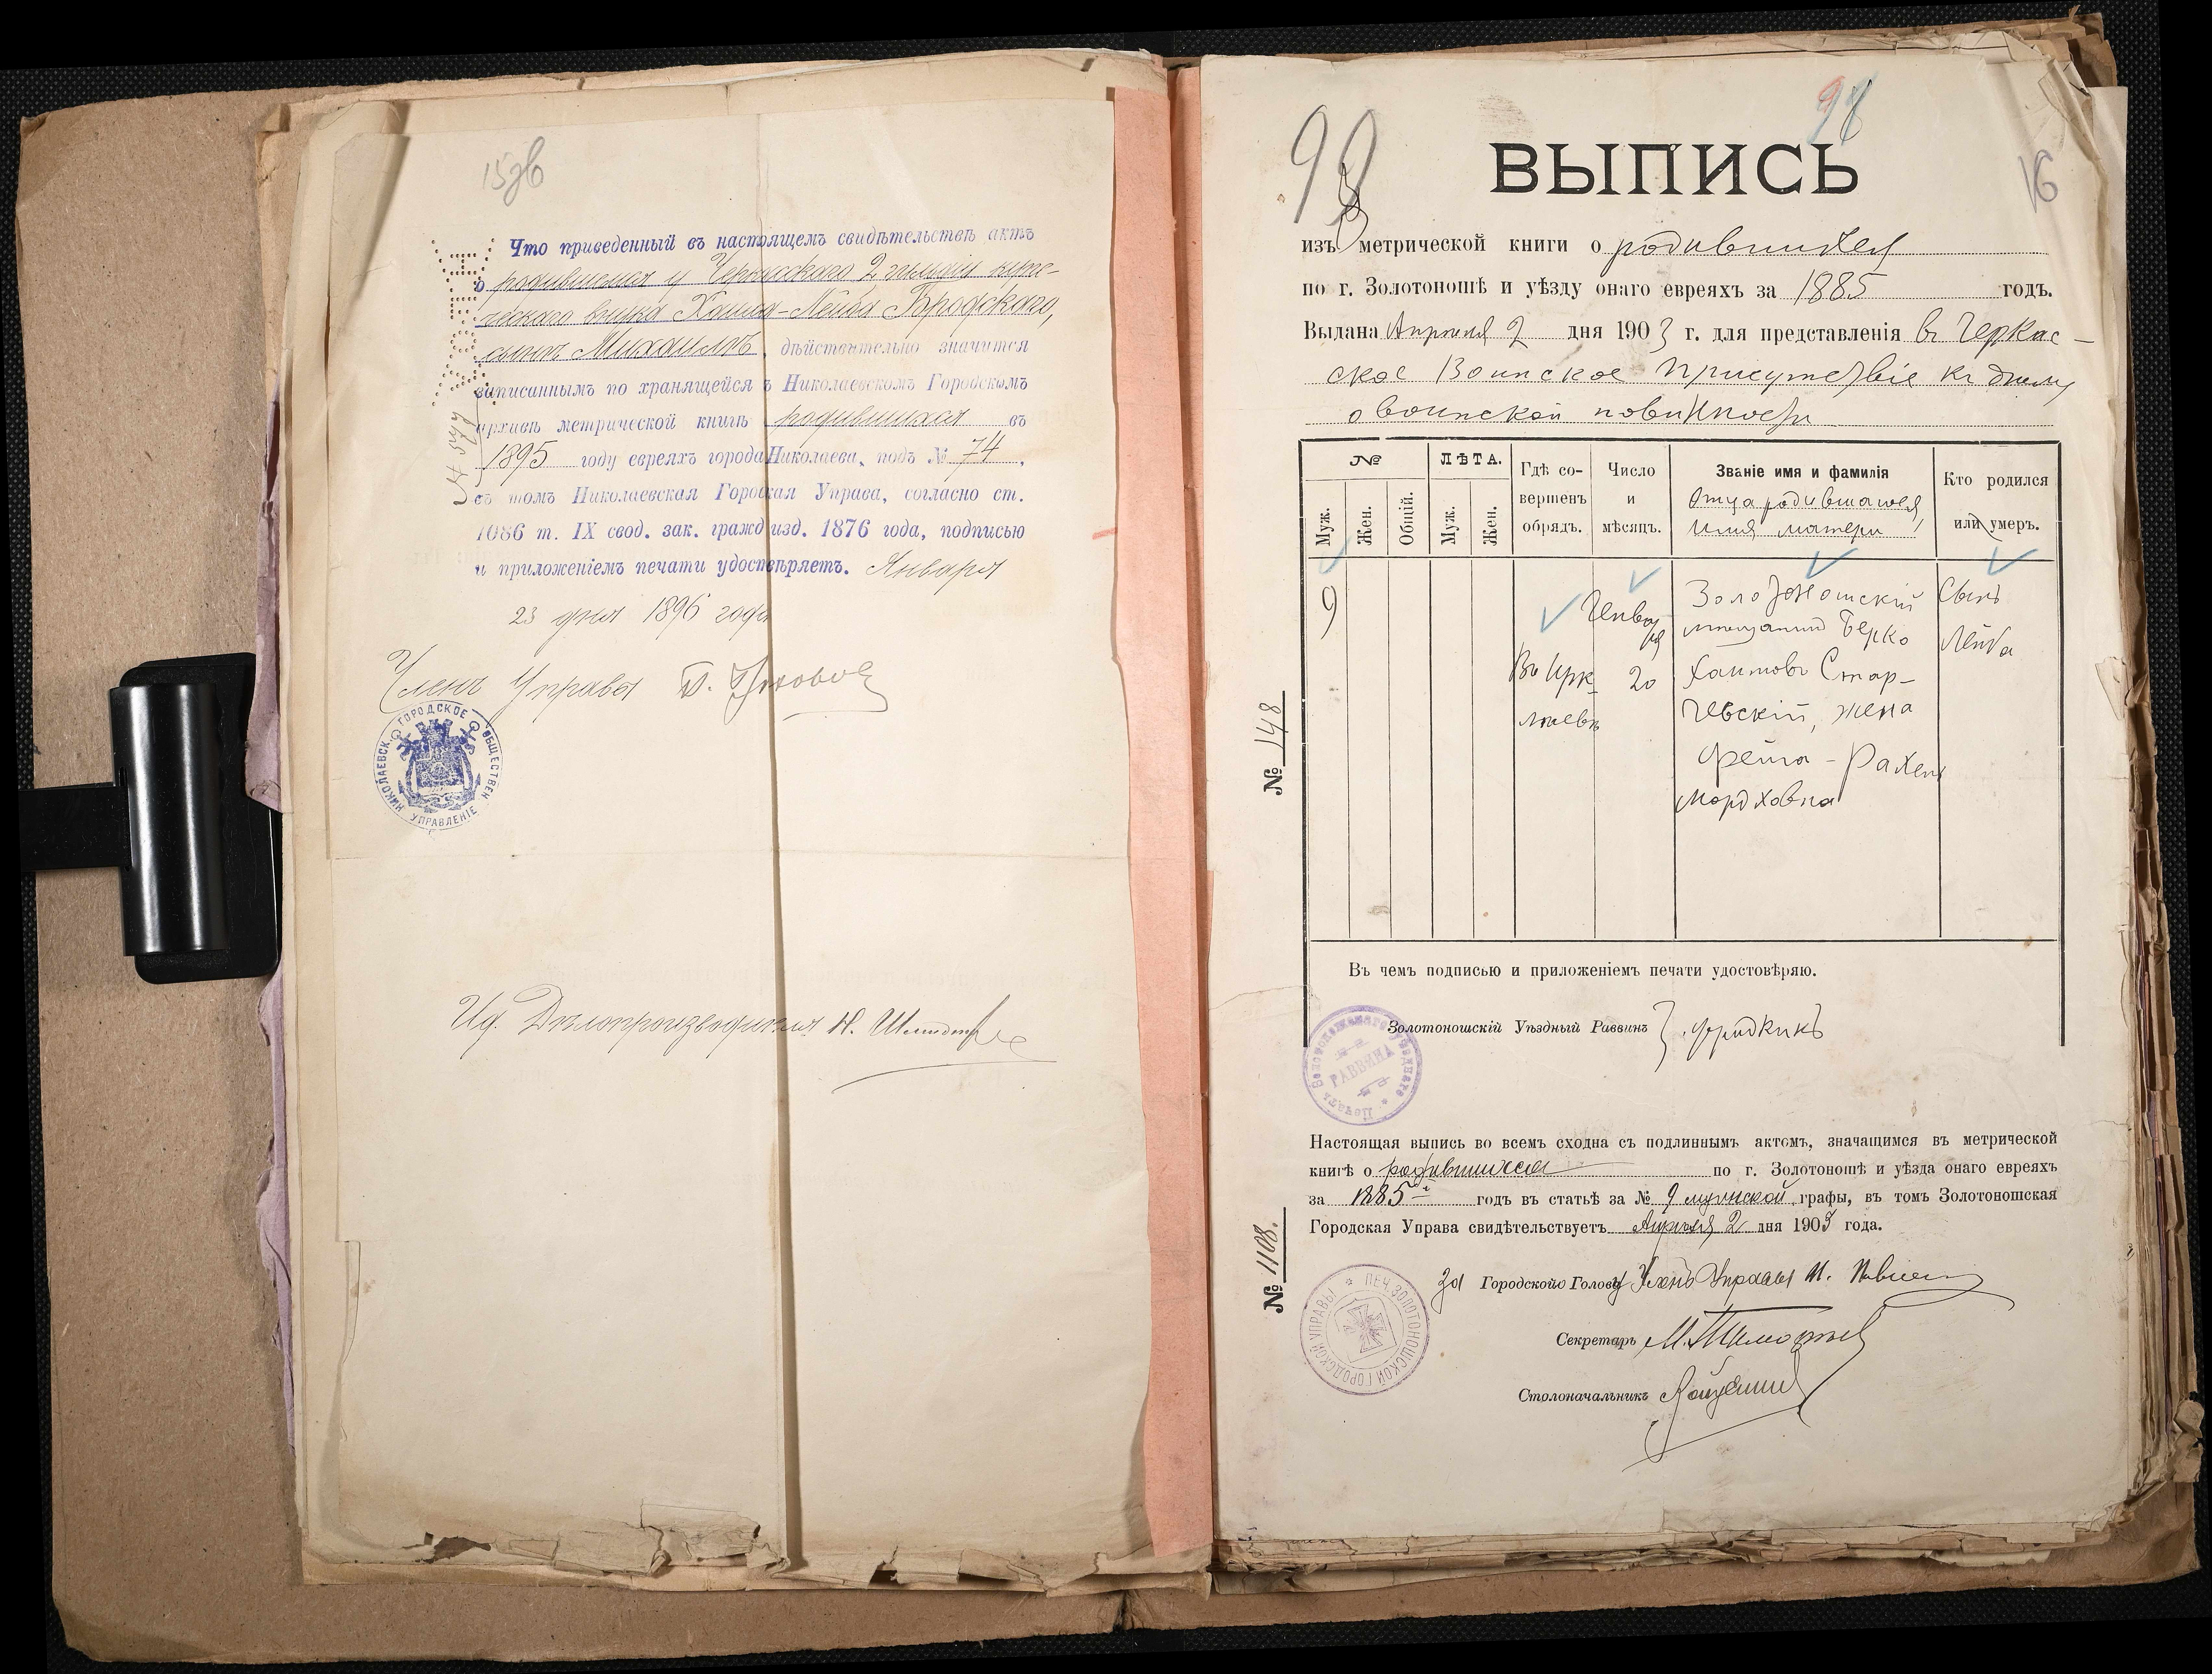 15зв
Что приведенный въ настоящемъ свидѣтельствѣ актъ
о родившемся у Черкасскаго 2 гильдіи купе-
ческаго внука Хаима-Лейба Бродскаго,
сынъ Михаилъ, дѣйствительно значится
записаннымъ по хранящейся в Николаевскомъ Городскомъ
архивѣ метрической книгѣ родившихся въ
1895 году евреяхъ города Николаева, подъ № 74,
въ томъ Николаевская Городская Управа, согласно ст.
1086 т. IX свод. зак. гражд изд. 1876 года, подписью
и приложеніемъ печати удостовѣряетъ. Января
23 дня 1896 года
Членъ Управы
НИКОЛАЕВСК. ГОРОДСКОЕ ОБЩЕСТВЕН. УПРАВЛЕНІЕ
И.д. Дѣлопроизводителя Н.
98
99
16
ВЫПИСЬ
изъ метрической книги о родившихся
по г. Золотоношѣ и уѣзду онаго евреяхъ за 1885 годъ.
Выдана Апреля 2 дня 1903 г. для представленія въ Черкас-
ское Воинское Присутствіе къ дѣлу
о воинской повинности
№ ЛѢТА. Гдѣ со- Число Званіе имя и фамилія Кто родился
Муж. Жен. Общій. Муж. Жен. вершенъ и отца родившагося, или умеръ.
обрядъ. мѣсяцъ. имя матери
9 Генваря Золотоношскій Сынъ
мѣщанинъ Берко Лейба
Въ Ирк- 20 Хаимовъ Стар-
лѣевѣ чевскій, жена
Фейга-Рахель
Мордховна
№ 148
Въ чемъ подписью и приложеніемъ печати удостовѣряю.
Золотоношскій Уѣздный Раввинъ Фридкинъ
Печать Золотоношскаго Уѣзднаго РАВВИНА
Настоящая выпись во всемъ сходна съ подлиннымъ актомъ, значащимся въ метрической
книгѣ о родившихся по г. Золотоношѣ и уѣзда онаго евреяхъ
за 1885 годъ въ статьѣ за № 9 мужской графы, въ томъ Золотоношская
Городская Управа свидѣтельствуетъ Апреля 2 дня 1903 года.
№ 1108.
За Городского Голову Членъ Управы И.
ПЕЧ. ЗОЛОТОНОШСКОЙ ГОРОДСКОЙ УПРАВЫ
Секретарь М.
Столоначальникъ